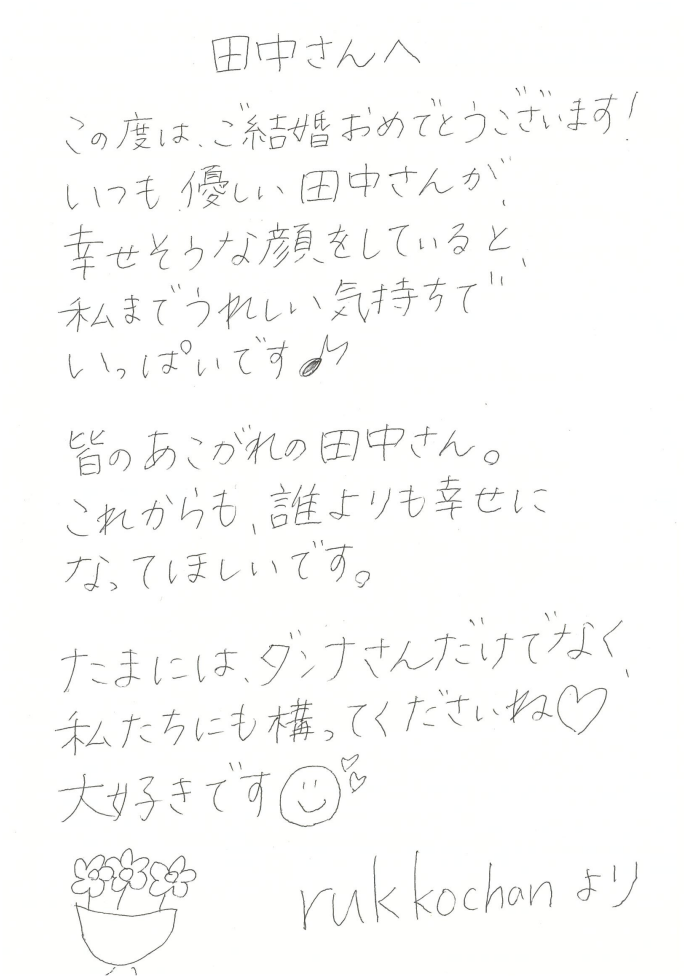 田中さんへ
この度は、ご結婚おめでとうございます!
いつも優しい田中さんが、
幸せそうな顔をしていると、
私までうれしい気持ちで
いっぱいです♪
皆のあこがれの田中さん。
これからも、誰よりも幸せに
なってほしいです。
たまには、ダンナさんだけでなく、
私たちにも構ってくださいね♡
大好きです
rukkochanより